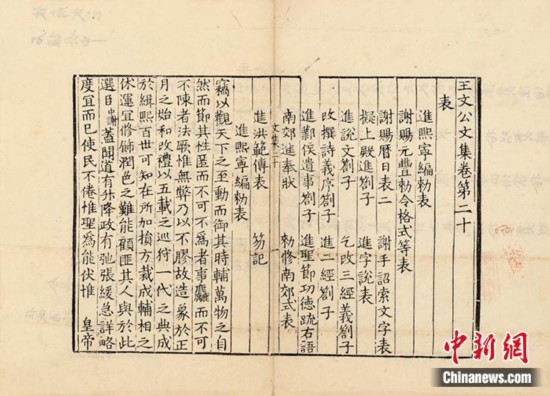 王文公文集卷第二十
表
進熙寧編勑表
謝賜元豐勑令格式等表
謝賜曆日表二 謝手詔索文字表
擬上殿進劄子 進字說表
進說文劄子 乞改三經義劄子
改撰詩義序劄子 進二經劄子
進鄴侯遺事劄子 進聖節功德疏右語
南郊進奉狀 勑修南郊式表
進洪範傳表 笏記
文集二十
進熙寧編勑表
竊以觀天下之至動而御其時輔萬物之自
然而節其性匪而不可不為者事麤而不可
不陳者法歟惟無弊乃以不膠故造象於正
月之始和改禮以五載之巡狩一代之典成
於緝熙百世可知在所加損方裁成輔相之
休運宜修飾潤色之難能顧匪其人與於此
選日中謝蓋聞道有升降政有弛張緩急詳略
度宜而已使民不倦惟聖為能伏惟 皇帝
中新網
Chinanews.com